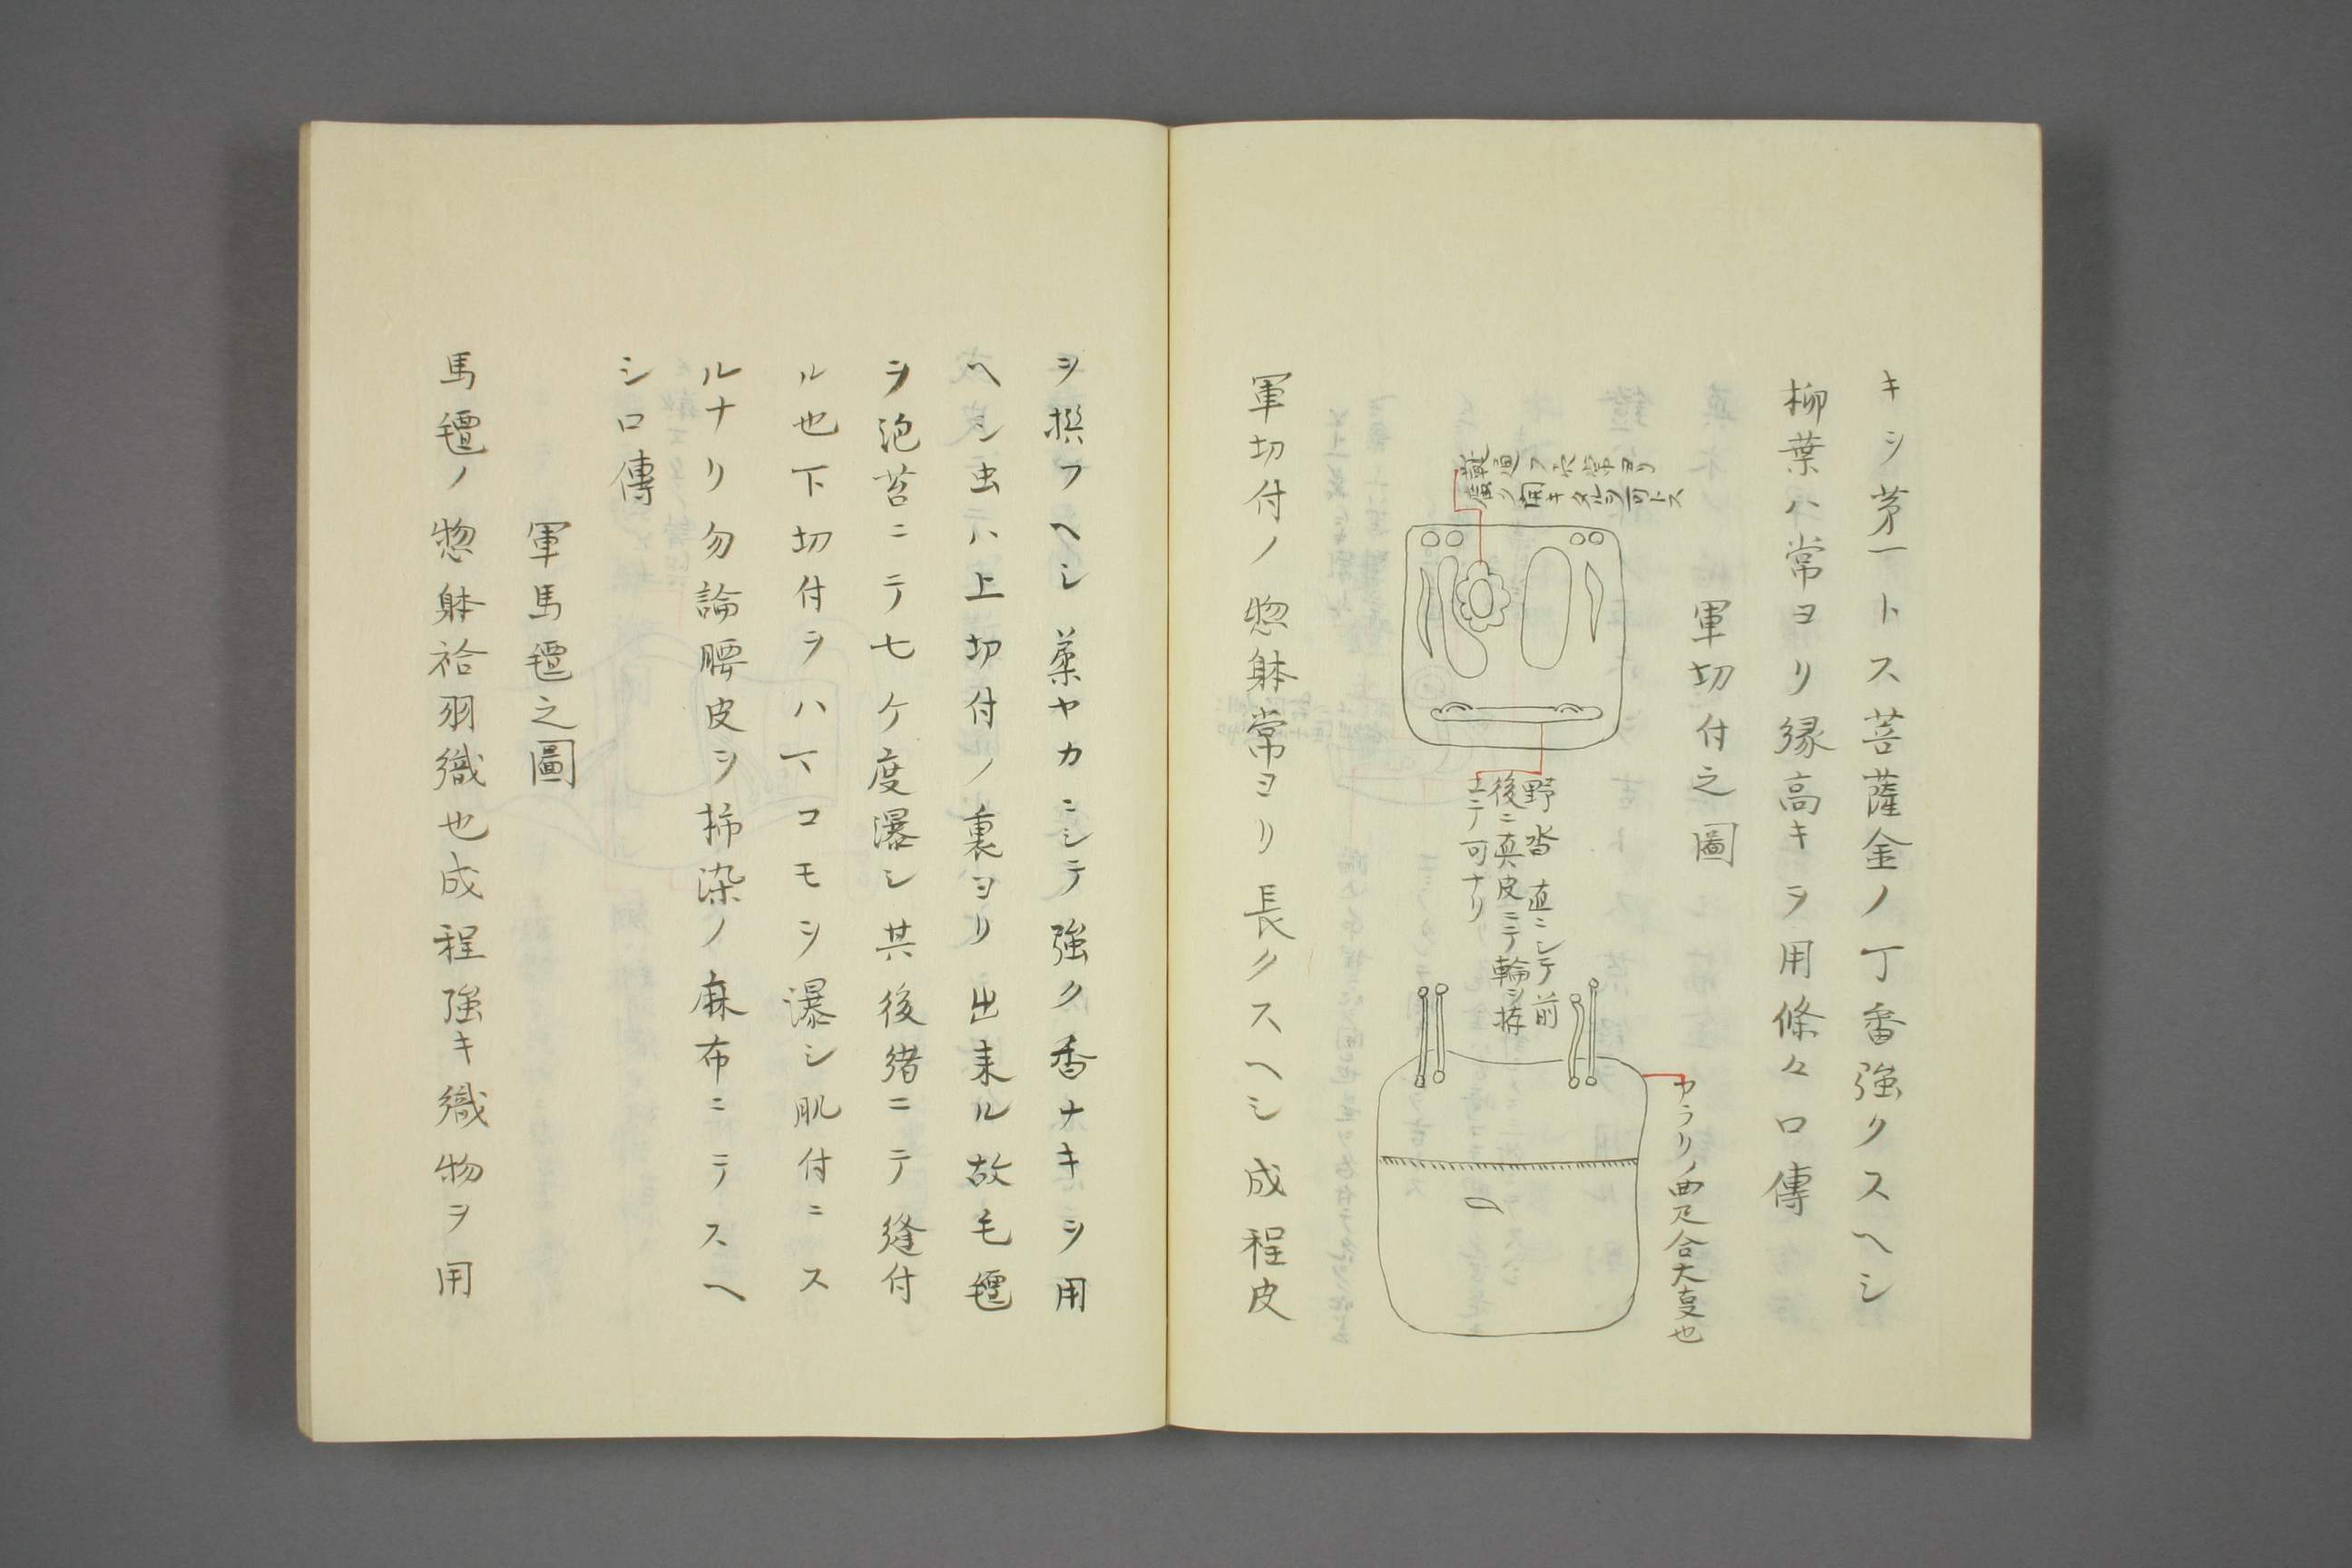 キシ茅一トス菩薩金ノ丁番強クスヘシ
柳葉ハ常ヨリ縁高キヲ用條々口傳
軍切付之圖
通フ穴常ヨリ
開キタルヲ可トス
野沓直ニシテ前
後ニ真皮ニテ輪ヲ拵
ニテ可ナリ
合大支也
軍切付ノ惣躰常ヨリ長クスヘシ成程皮
ヲ撰フヘシ藁ヤカニシテ強ク香ナキヲ用
ヘシ虫ハ上切付ノ裏ヨリ出来ル故毛氊
ヲ泡苔ニテ七ケ度瀑シ其後緒ニテ縫付
ル也下切付ヲハ丅コモヲ瀑シ肌付ニス
ルナリ勿論腰皮ヲ柹染ノ麻布ニテスヘ
シ口傳
軍馬氊之圖
馬氊ノ惣躰袷羽織也成程強キ織物ヲ用